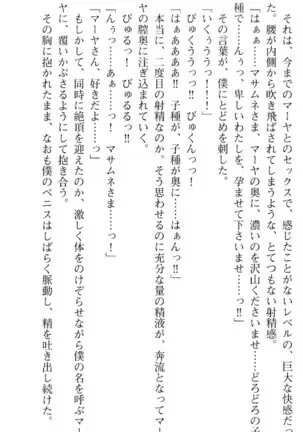 それは、今までのマーヤとのセックスで、感じたことがないレベルの、巨大な快感だっ
た。腰が内側から吹き飛ばされてしまうような、とてつもない射精感。
「はぁっ……マサムネさま……マーヤの奥に、濃いのを沢山くださいませ……どろどろの子
種で……んぁっっ、卑しいわたしを、孕ませて下さいませ……っ!!」
その言葉が、僕にとどめを刺した。
「いくぅううっっ!!」
びゅくううっっ!!　びゅくんっっ!
「はぁぁあああっ!!　子種が、子種が奥に……はぁんっ!!」
本当に、二度目の射精なのか。そう思わせるのに充分な量の精液が、奔流となってマー
ヤの膣奥に注ぎ込まれていく。
びゅるっ!　びゅるるっ!!
「んぁっ……あぁ……っ!　マサムネさま……っ!!」
「マーヤさん、好きだよ……っ」
もしかして、同時に絶頂を迎えたのか、激しく体をのけぞらせながら僕の名を呼ぶマー
ヤに、覆いかぶさるようにして抱き合う。
その胸に抱かれたまま、なおも僕のペニスはしばらく脈動し、精を吐き出し続けた。